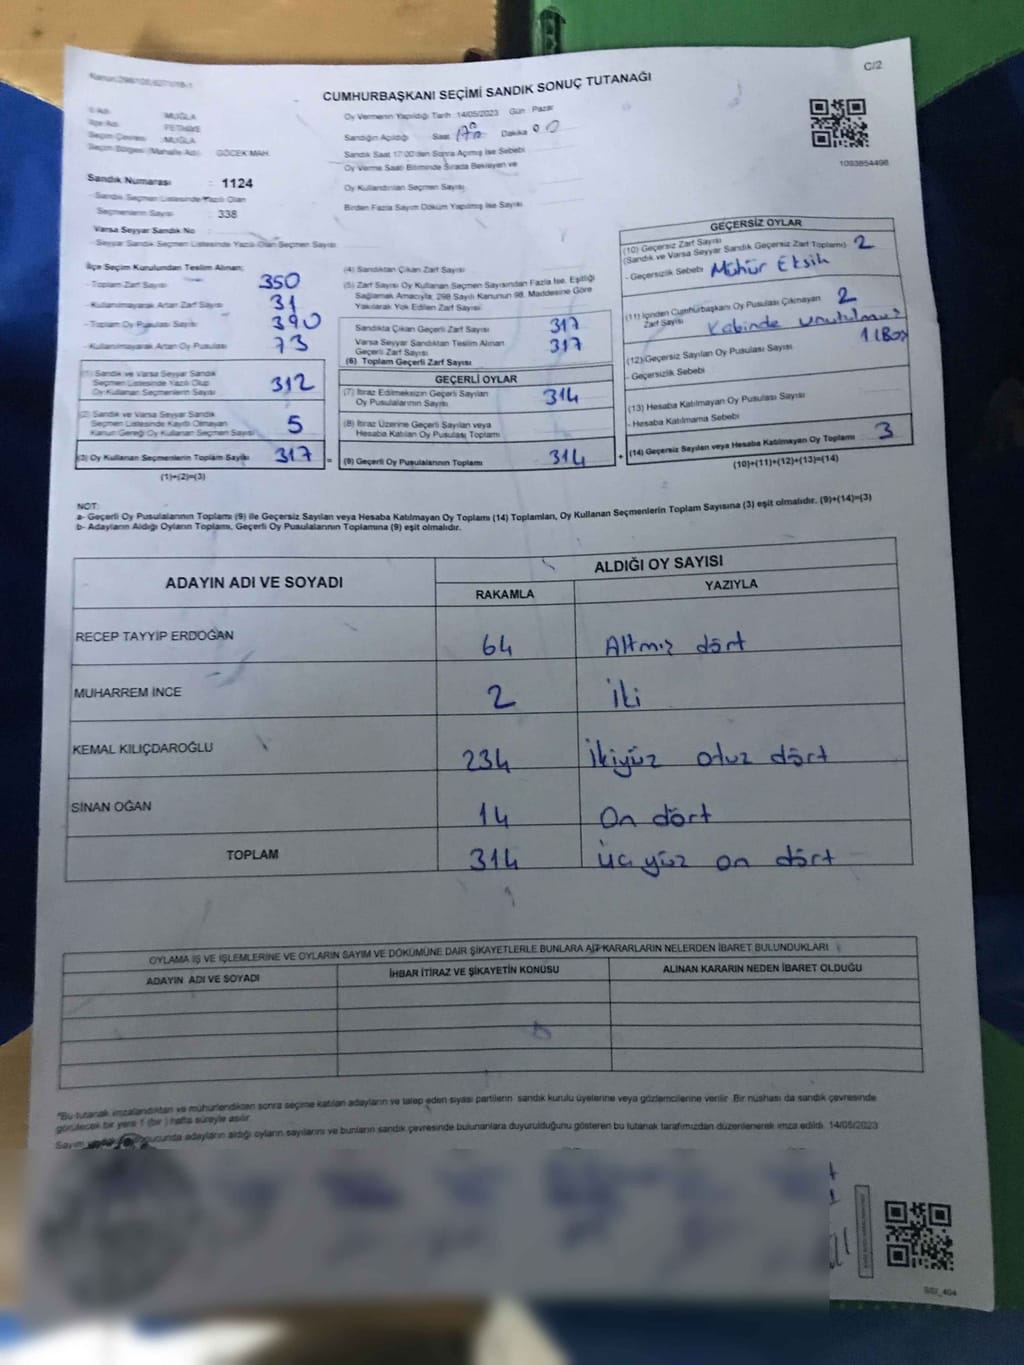 C/2
CUMHURBAŞKANI SEÇİMİ SANDIK SONUÇ TUTANAĞI
İl Adı : MUĞLA
İlçe Adı : FETHİYE
Seçim Çevresi : MUĞLA
Seçim Bölgesi (Mahalle Adı) : GÖCEK MAH.
Sandık Numarası : 1124
Sandık Seçmen Listesinde Yazılı Olan
Seçmenlerin Sayısı : 338
Varsa Seyyar Sandık No
- Seyyar Sandık Seçmen Listesinde Yazılı Olan Seçmen Sayısı
Oy Vermenin Yapıldığı Tarih : 14/05/2023 Gün : Pazar
Sandığın Açıldığı Saat Dakika 00
Sandık Saat 17:00'den Sonra Açılmış İse Sebebi
Oy Verme Saati Bitiminde Sırada Bekleyen ve
Oy Kullandırılan Seçmen Sayısı
Birden Fazla Sayım Döküm Yapılmış İse Sayısı
1093854498
İlçe Seçim Kurulundan Teslim Alınan;
- Toplam Zarf Sayısı 350
- Kullanılmayarak Artan Zarf Sayısı 31
- Toplam Oy Pusulası Sayısı 390
- Kullanılmayarak Artan Oy Pusulası 73
(1) Sandık ve Varsa Seyyar Sandık
Seçmen Listesinde Yazılı Olup
Oy Kullanan Seçmenlerin Sayısı 312
(2) Sandık ve Varsa Seyyar Sandık
Seçmen Listesinde Kayıtlı Olmayan
Kanun Gereği Oy Kullanan Seçmen Sayısı 5
(3) Oy Kullanan Seçmenlerin Toplam Sayısı 317 =
(1)+(2)=(3)
(4) Sandıktan Çıkan Zarf Sayısı
(5) Zarf Sayısı Oy Kullanan Seçmen Sayısından Fazla İse, Eşitliği
Sağlamak Amacıyla, 298 Sayılı Kanunun 98. Maddesine Göre
Yakılarak Yok Edilen Zarf Sayısı
Sandıkta Çıkan Geçerli Zarf Sayısı 317
Varsa Seyyar Sandıktan Teslim Alınan
Geçerli Zarf Sayısı 317
(6) Toplam Geçerli Zarf Sayısı
GEÇERLİ OYLAR
(7) İtiraz Edilmeksizin Geçerli Sayılan
Oy Pusulalarının Sayısı 314
(8) İtiraz Üzerine Geçerli Sayılan ve
Hesaba Katılan Oy Pusulası Toplamı
(9) Geçerli Oy Pusulalarının Toplamı 314 +
GEÇERSİZ OYLAR
(10) Geçersiz Zarf Sayısı
(Sandık ve Varsa Seyyar Sandık Geçersiz Zarf Toplamı) 2
- Geçersizlik Sebebi Mühür Eksik
(11) İçinden Cumhurbaşkanı Oy Pusulası Çıkmayan
Zarf Sayısı 2
Kabinde unutulmuş
1 (Boş
(12) Geçersiz Sayılan Oy Pusulası Sayısı
- Geçersizlik Sebebi
(13) Hesaba Katılmayan Oy Pusulası Sayısı
- Hesaba Katılmama Sebebi
(14) Geçersiz Sayılan veya Hesaba Katılmayan Oy Toplamı 3
(10)+(11)+(12)+(13)=(14)
NOT:
a- Geçerli Oy Pusulalarının Toplamı (9) ile Geçersiz Sayılan veya Hesaba Katılmayan Oy Toplamı (14) Toplamları, Oy Kullanan Seçmenlerin Toplam Sayısına (3) eşit olmalıdır. (9)+(14)=(3)
b- Adayların Aldığı Oyların Toplamı, Geçerli Oy Pusulalarının Toplamına (9) eşit olmalıdır.
ADAYIN ADI VE SOYADI ALDIĞI OY SAYISI
RAKAMLA YAZIYLA
RECEP TAYYİP ERDOĞAN 64 Altmış dört
MUHARREM İNCE 2 İki
KEMAL KILIÇDAROĞLU 234 İkiyüz otuz dört
SİNAN OĞAN 14 On dört
TOPLAM 314 üç yüz on dört
OYLAMA İŞ VE İŞLEMLERİNE VE OYLARIN SAYIM VE DÖKÜMÜNE DAİR ŞİKAYETLERLE BUNLARA AİT KARARLARIN NELERDEN İBARET BULUNDUKLARI
ADAYIN ADI VE SOYADI İHBAR İTİRAZ VE ŞİKAYETİN KONUSU ALINAN KARARIN NEDEN İBARET OLDUĞU
*Bu tutanak imzalandıktan ve mühürlendikten sonra seçime katılan adayların ve talep eden siyasi partilerin sandık kurulu üyelerine veya gözlemcilerine verilir. Bir nüshası da sandık çevresinde
görülecek bir yere 1 (bir) hafta süreyle asılır.
Sayım adayların aldığı oyların sayılarını ve bunların sandık çevresinde bulunanlara duyurulduğunu gösteren bu tutanak tarafımızdan düzenlenerek imza edildi. 14/05/2023